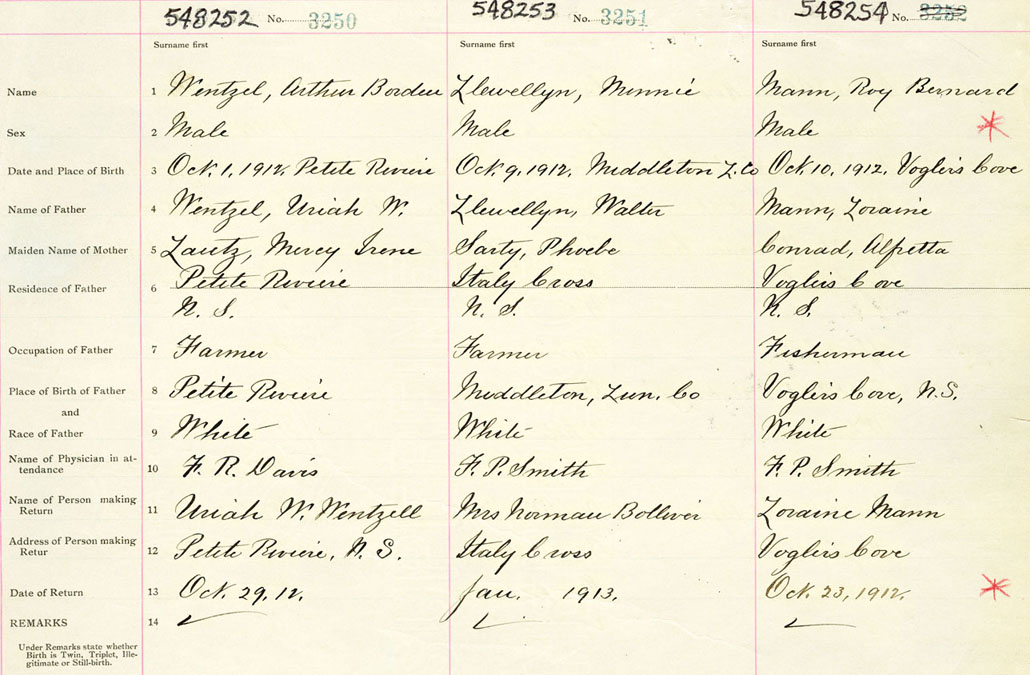 548252 No. 3250 548253 No. 3251 548254 No. 3252
Surname first Surname first Surname first
Name 1 Wentzel, Arthur Borden Llewellyn, Minnie Mann, Roy Bernard
Sex 2 Male Male Male
Date and Place of Birth 3 Oct. 1, 1912, Petite Riviere Oct 9, 1912, Middleton L. Co Oct 10, 1912, Voglers Cove
Name of Father 4 Wentzel, Uriah W. Llewellyn, Walter Mann, Loraine
Maiden Name of Mother 5 Lantz, Mercy Irene Sarty, Phoebe Conrad, Alfretta
Residence of Father 6 Petite Riviere Italy Cross Voglers Cove
N. S. N. S. N. S.
Occupation of Father 7 Farmer Farmer Fisherman
Place of Birth of Father 8 Petite Riviere Middleton, Lun. Co Voglers Cove, N.S.
and
Race of Father 9 White White White
Name of Physician in at-
tendance 10 F. R. Davis F. P. Smith F. P. Smith
Name of Person making
Return 11 Uriah W. Wentzell Mrs Norman Bolliver Loraine Mann
Address of Person making
Retur 12 Petite Riviere, N. S. Italy Cross Voglers Cove
Date of Return 13 Oct. 29, 12. Jan. 1913. Oct. 23, 1912.
REMARKS 14
Under Remarks state whether
Birth is Twin, Triplet, Ille-
gitimate or Still-birth.